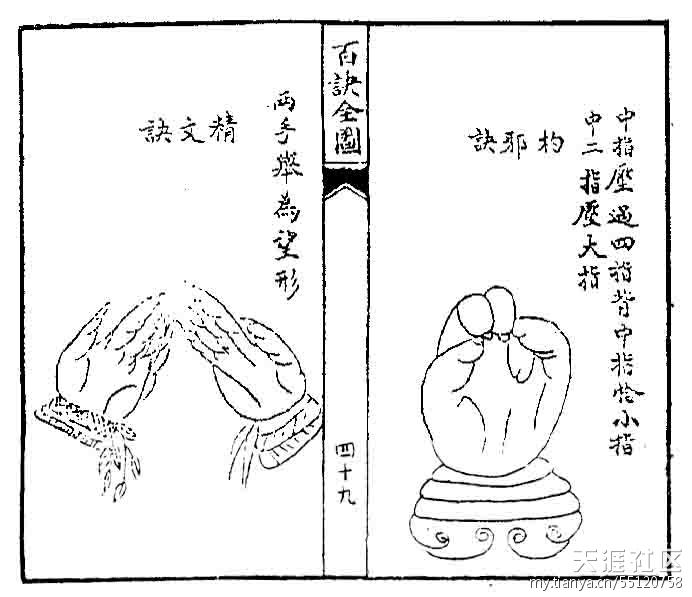 中指壓過四指背中指恰小指
中二指壓大指
杓邪訣
百訣全圖
四十九
兩手舉為望形
精文訣
天涯社区
my.tianya.cn/55120758